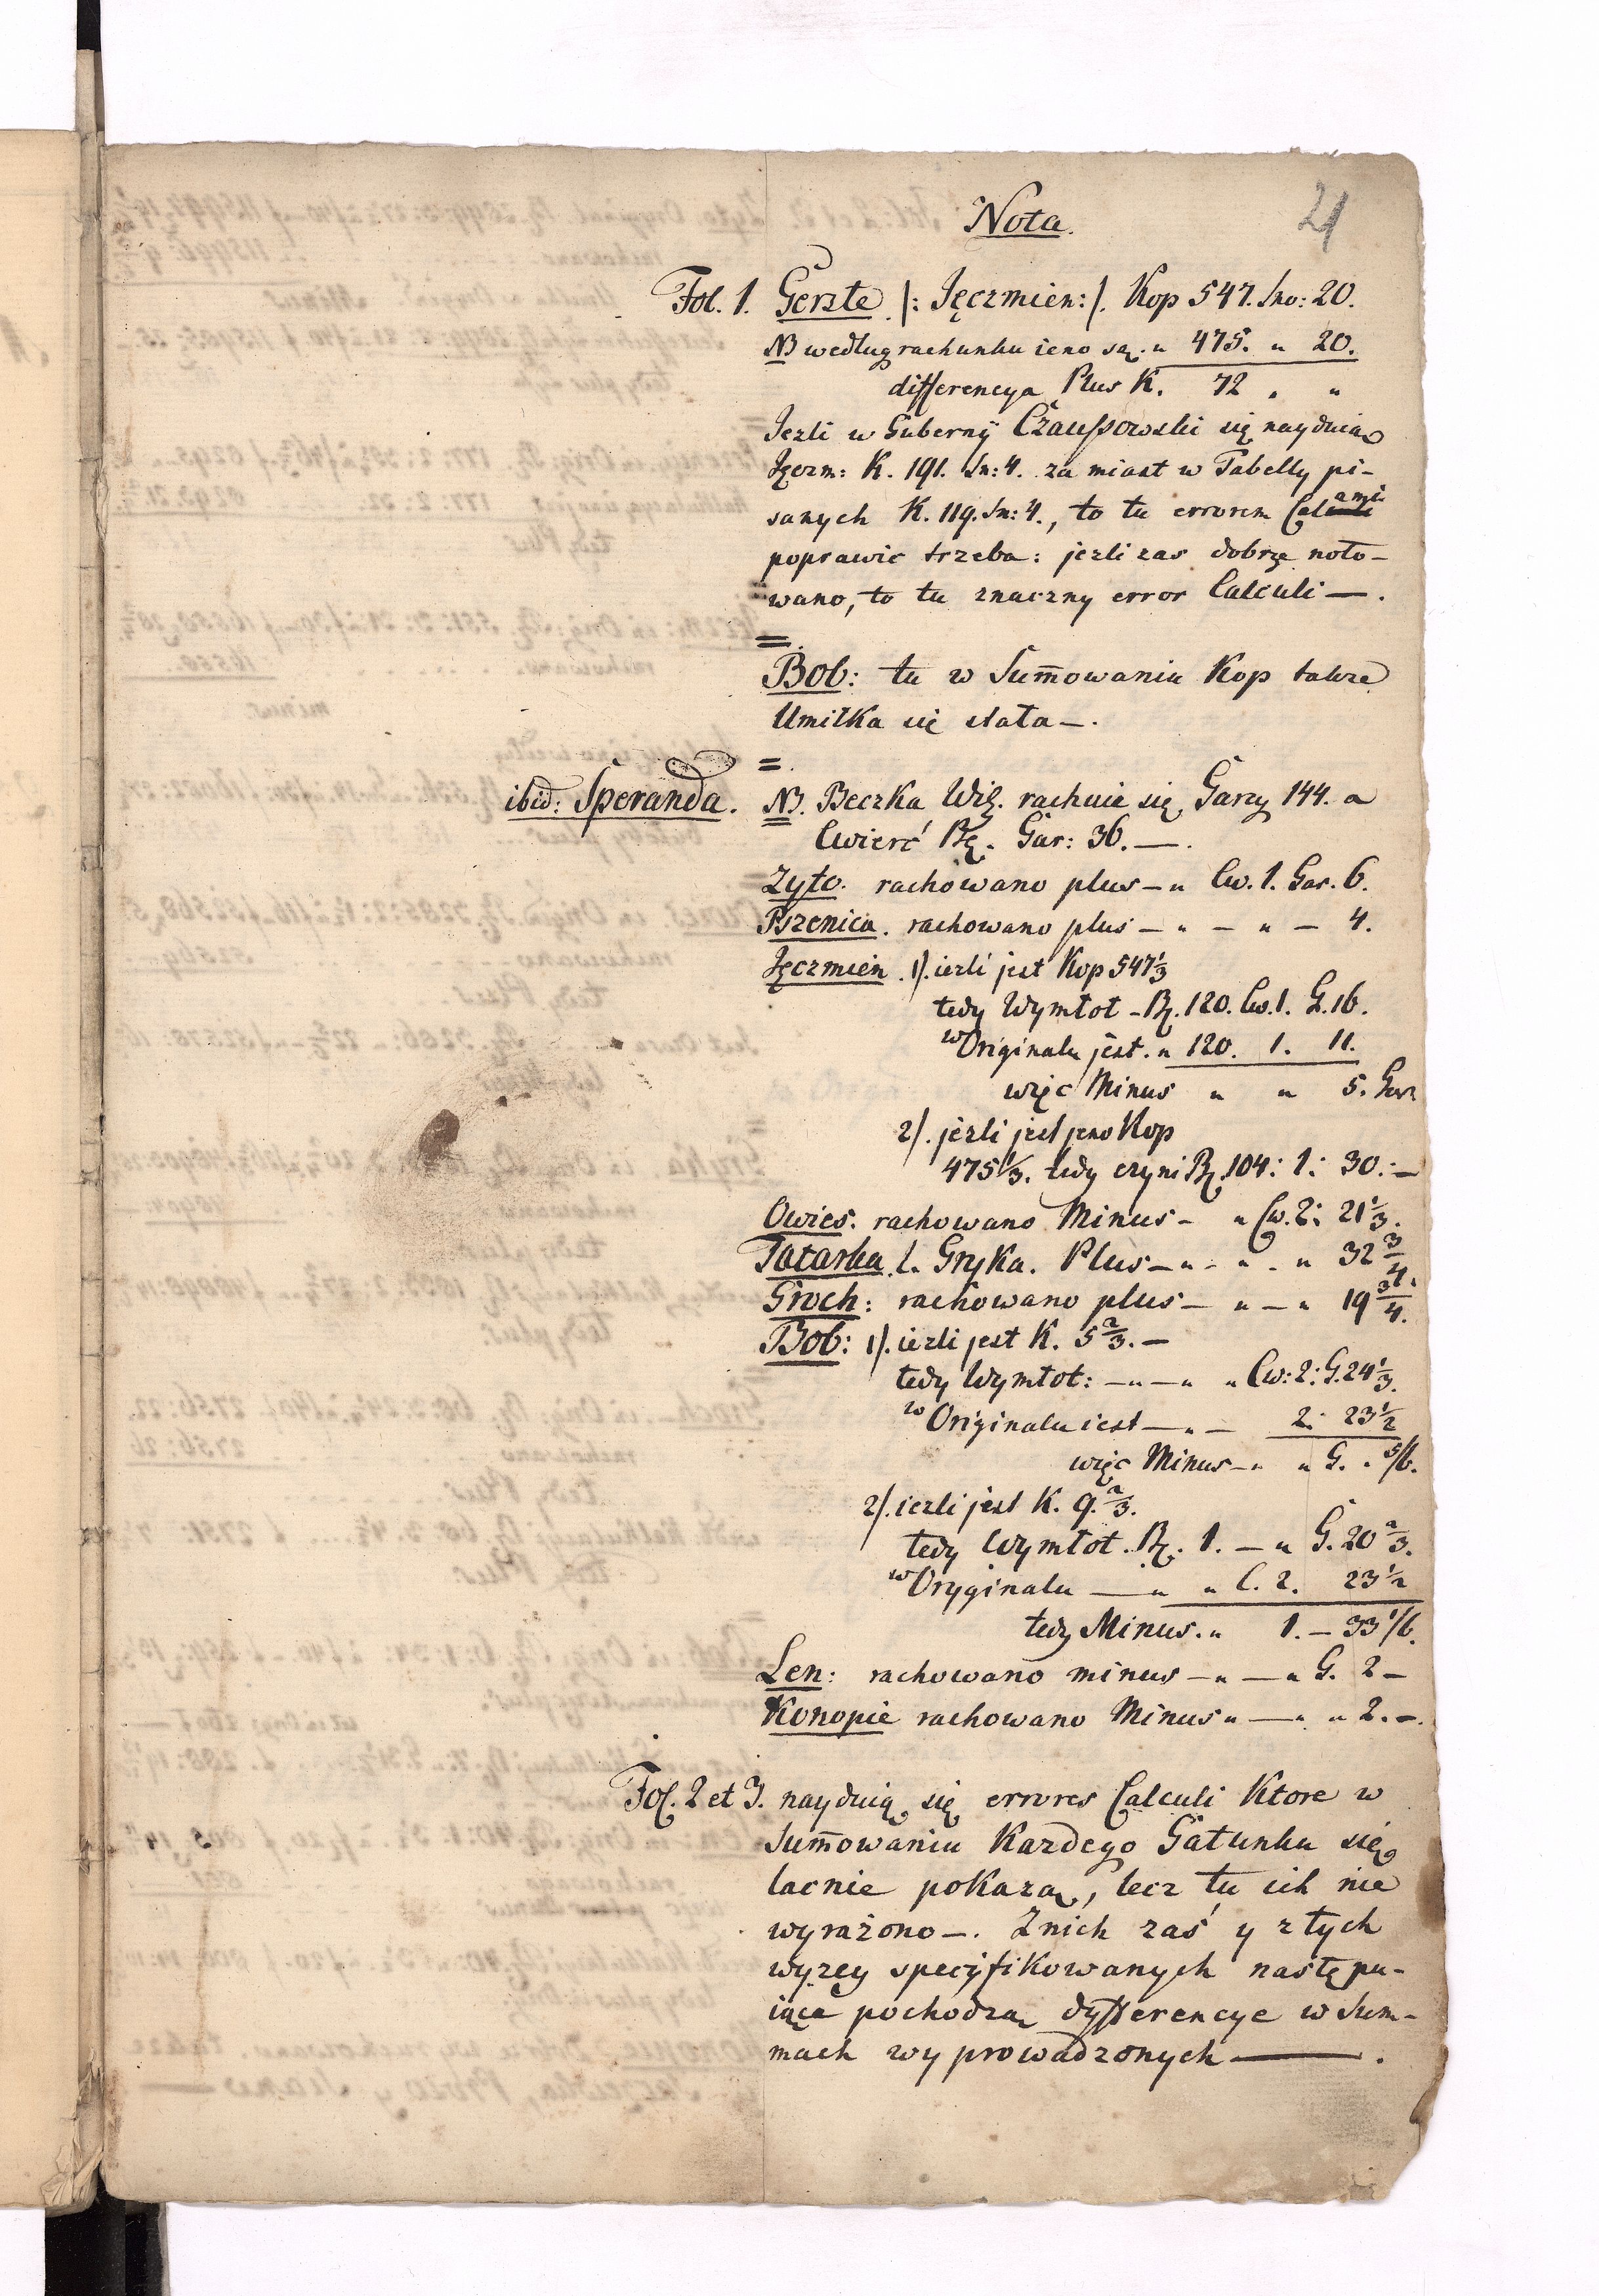 21
Nota.
Fol. 1. Gerste /: Jęczmien :/. Kop 547. Sno: 20.
NB według rachunku ieno są. „ 475. „ 20.
differencya Plus K. 72 „ „
Jezli w Guberny Czaussowski się naydzie
Jęczm: K. 191. Sn: 4. za miast w Tabelly pi-
sanych K. 119. Sn: 4., to tu errorem Calami
poprawic trzeba: jezli zas dobrze noto-
wano, to tu znaczny error Calculi —.
=.
Bob: tu w Sum̄owaniu Kop takze
Umiłka się stała —.
=.
ibid: Speranda. NB. Beczka Wil. rachuie się, Garcy 144. a
Cwierć Bę. Gar: 36. —.
Zyto. rachowano plus — „ Cw. 1. Gar. 6.
Pszenica. rachowano plus — „ — „ — 4.
Jęczmien. 1/. iezli jest Kop 547 1/3
tedy Wymłot - Bę. 120. Cw. 1. G. 16.
w Originalu jest. „ 120. 1. 11.
więc Minus „ „ 5. Gar
2/. jezli jest jeno Kop
475 1/3. tedy czyni Bę. 104: 1: 30: —
Owies. rachowano Minus - „ Cw. 2: 21 1/3.
Tatarka l. Gryka. Plus — „ - „ - „ 32 3/4.
Groch: rachowano plus — „ — „ 19 3/4.
Bob: 1/. iezli jest K. 5 2/3. —
tedy Wymłot: — „ — „ „ Cw: 2: G. 24 1/3.
w Originalu iest — „ — 2: 23 1/2
więc Minus — „ „ G. „ 5/6.
2/. iezli jest K. 9. 2/3.
tedy Wymłot. Bę. 1. — „ G. 20 2/3.
w Oryginalu — „ „ C. 2. 23 1/2
tedy Minus. „ 1. — 33 1/6.
Len: rachowano minus — „ — „ G. 2 —
Konopie rachowano Minus „ — „ „ 2. —.
Fol. 2 et 3. naydują się errores Calculi Ktore w
Sum̄owaniu Kazdego Gatunku się
łacnie pokazą, lecz tu ich nie
wyrażono —. Znich zaś y z tych
wyzey specyfikowanych następu-
iące pochodzą dyfferencye w Sum-
mach wyprowadzonych ——.